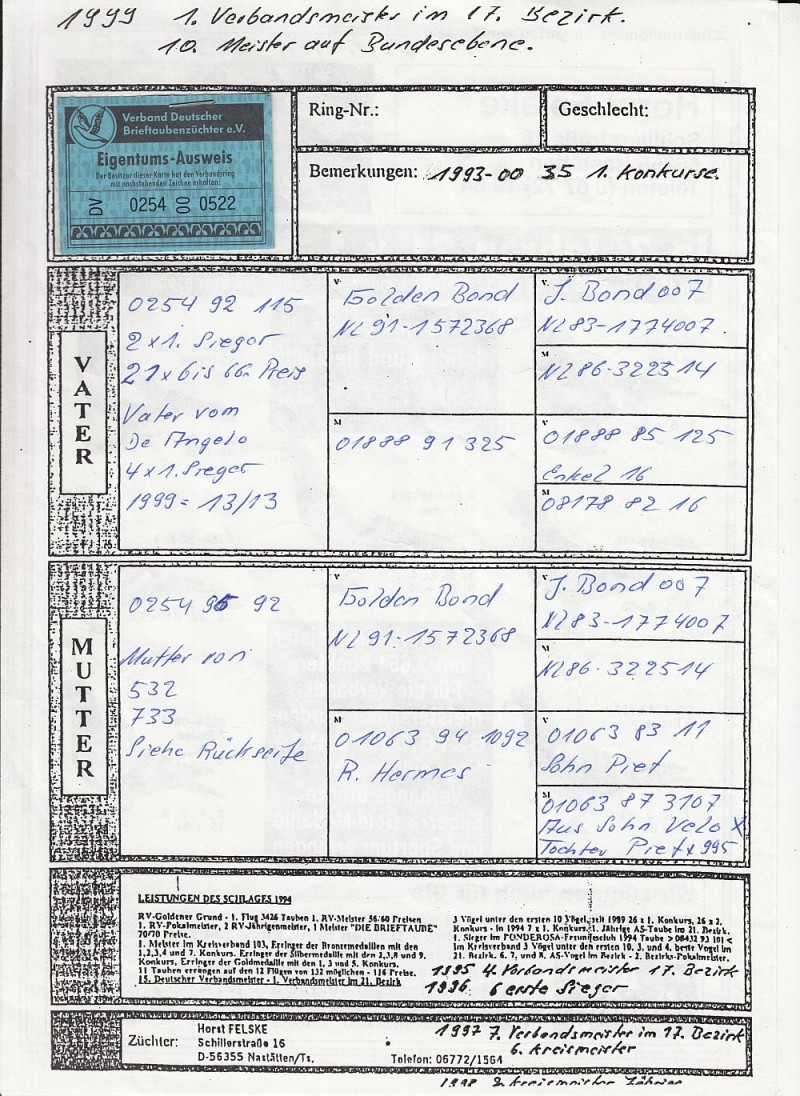 1999 1. Verbandsmeister im 17. Bezirk.
10. Meister auf Bundesebene.
Verband Deutscher
Brieftaubenzüchter e.V.
Eigentums-Ausweis
Der Besitzer dieser Karte hat den Verbandsring
mit nachstehenden Zeichen erhalten:
DV 0254 00 0522
Ring-Nr.:
Geschlecht:
Bemerkungen: 1993-00 35 1. Konkurse.
VATER
0254 92 115
2x1. Sieger
21x bis 66. Preis
Vater vom
De Angelo
4x1. Sieger
1999 = 13/13
V
Golden Bond
NL91-1572368
M
01888 91 325
V
J. Bond 007
NL83-1774007
M
NL86-322514
V
01888 85 125
Enkel 16
M
08178 82 16
MUTTER
0254 96 92
Mutter von
532
733
Siehe Rückseite
V
Golden Bond
NL91-1572368
M
01063 94 1092
R. Hermes
V
J. Bond 007
NL83-1774007
M
NL86-322514
V
01063 83 11
Sohn Piet
M
01063 87 3107
Aus Sohn Velo X
Tochter Piet x 995
LEISTUNGEN DES SCHLAGES 1994
RV-Goldener Grund - 1. Flug 3426 Tauben 1. RV-Meister 56/60 Preisen
1. RV-Pokalmeister, 2 RV-Jährigenmeister, 1 Meister "DIE BRIEFTAUBE"
70/70 Preise.
1. Meister im Kreisverband 103, Erringer der Bronzemedaillen mit den
1,2,3,4 und 7. Konkurs. Erringer der Silbermedaille mit den 2,3,8, und 9.
Konkurs. Erringer der Goldmedaille mit den 1, 3 und 5. Konkurs.
11 Tauben errangen auf den 12 Flügen von 132 möglichen - 116 Preise.
15. Deutscher Verbandsmeister - 1. Verbandsmeister im 21. Bezirk
3 Vögel unter den ersten 10 Vögel, seit 1989 26 x 1. Konkurs, 26 x 2.
Konkurs - in 1994 7 x 1. Konkurs. 1. Jährige AS-Taube im 21. Bezirk.
1. Sieger im PONDEROSA-Freundesclub 1994 Taube > 08432 93 101 <
im Kreisverband 3 Vögel unter den ersten 10. 3, und 4, beste Vogel im
21. Bezirk. 6. 7, und 8. AS-Vogel im Bezirk - 2. Bezirks-Pokalmeister.
1995 4. Verbandsmeister 17. Bezirk
1996 6 erste Sieger
Züchter:
Horst FELSKE
Schillerstraße 16
D-56355 Nastätten/Ts.
Telefon: 06772/1564
1997 7. Verbandsmeister im 17. Bezirk
6. Kreismeister
1998 2. Kreismeister